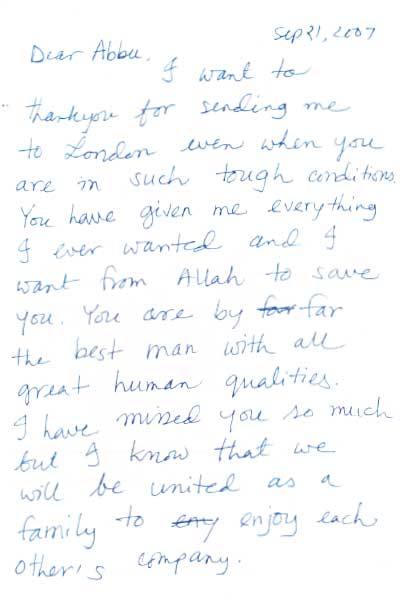 Sep 21, 2007
Dear Abbu,
I want to
thankyou for sending me
to London even when you
are in such tough conditions.
You have given me everything
I ever wanted and I
want from Allah to save
you. You are by four far
the best man with all
great human qualities.
I have missed you so much
but I know that we
will be united as a
family to eny enjoy each
other's company.